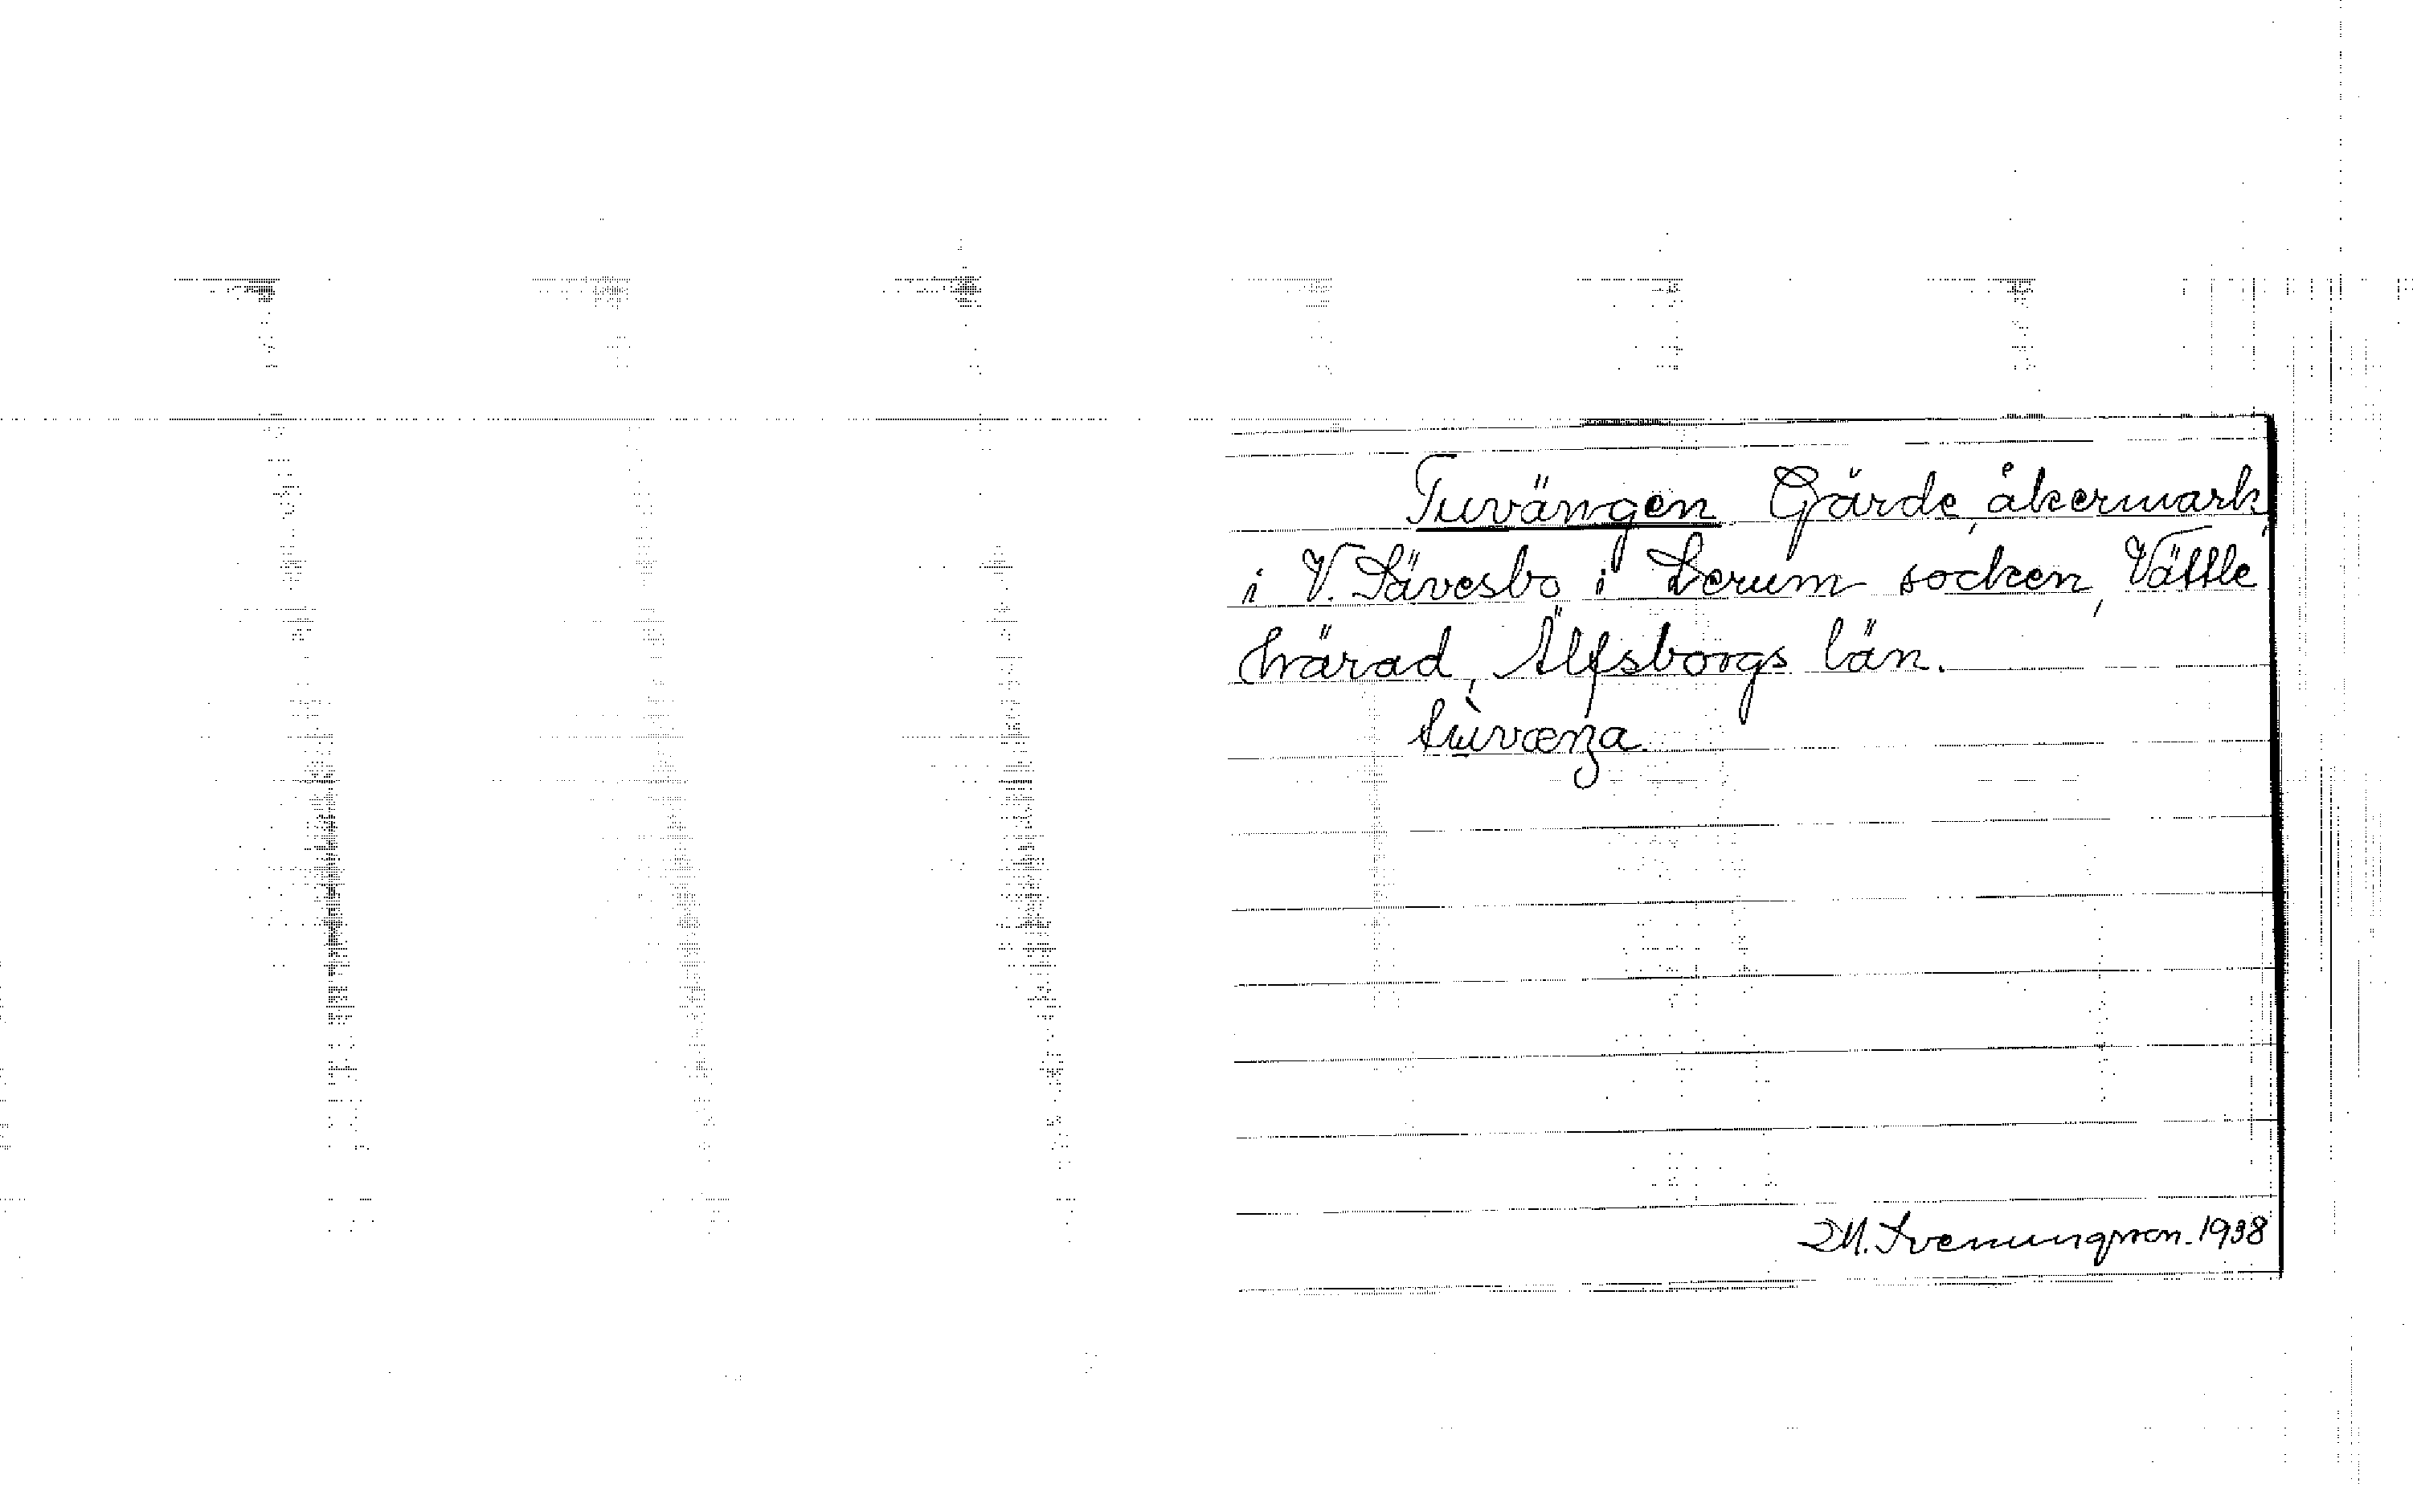 Tuvängen Gärde, åkermark,
i V. Sävesbo i Lerum socken, Vättle
härad, Älfsborgs län.
M. Svenungsson. 1938